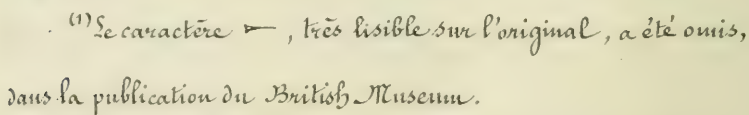 (1) Le caractère 𒀸, très lisible sur l'original, a été omis,
dans la publication du British Museum.